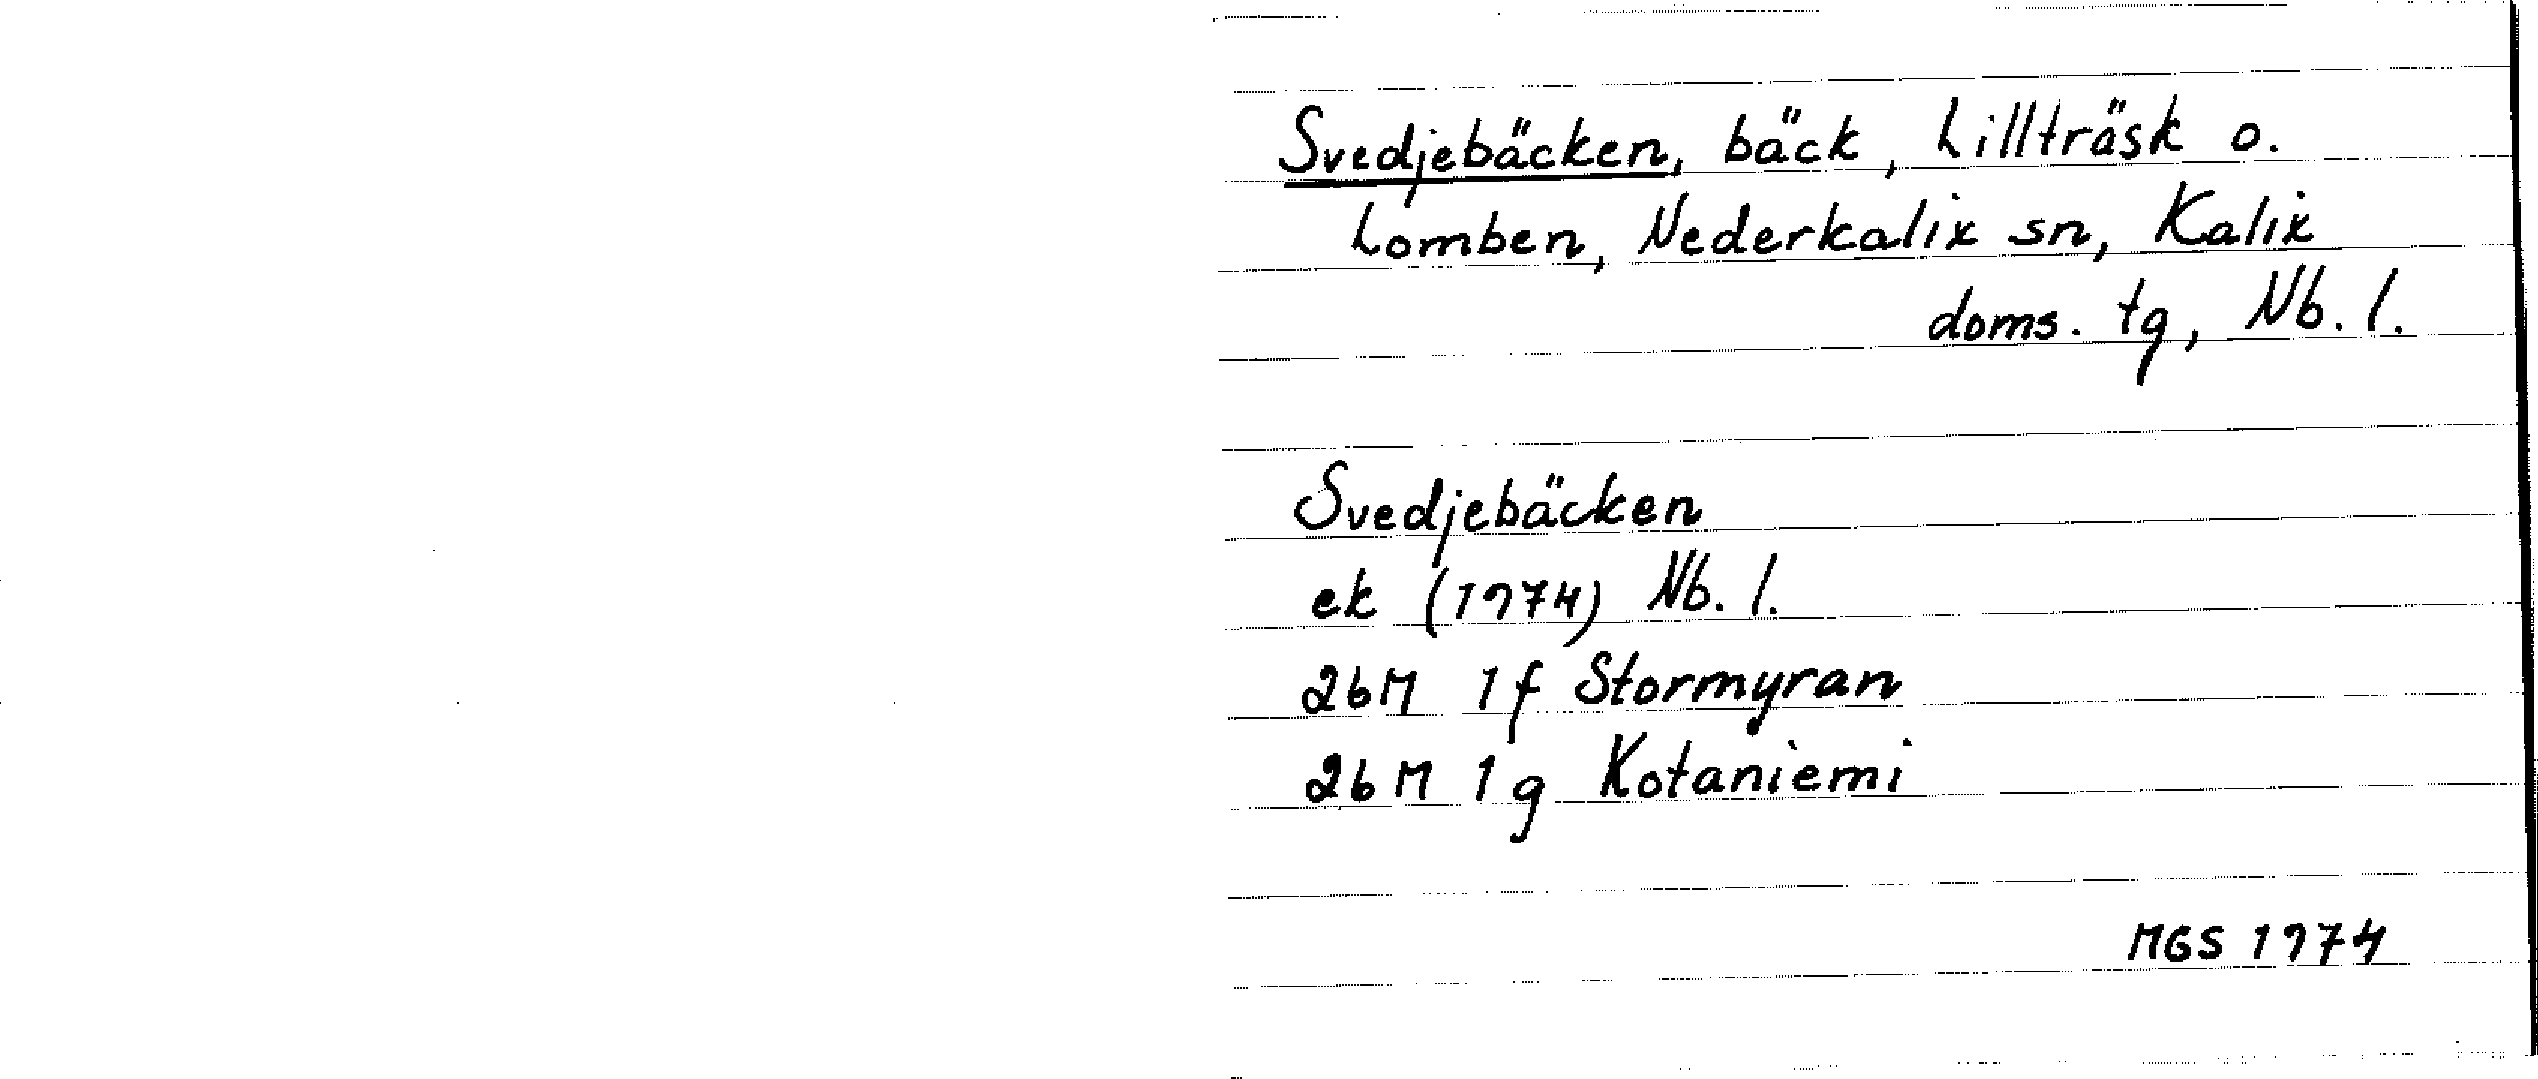 Svedjebäcken, bäck, Lillträsk o.
Lomben, Nederkalix sn, Kalix
doms. tg, Nb. l.
Svedjebäcken
ek (1974) Nb. l.
26M 1f Stormyran
26M 1g Kotaniemi
MGS 1974